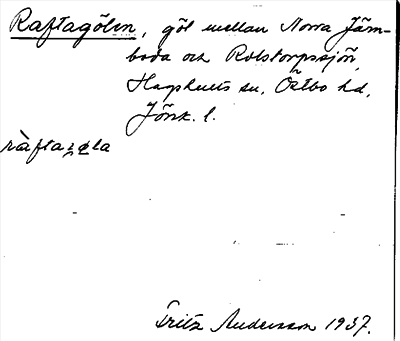 Raftagölen, göl mellan Norra Jäm-
boda och Rolstorpssjön,
Hagshults sn, Östbo hd,
Jönk. l.
ràftaꭓøla
Fritz Andersson 1937.